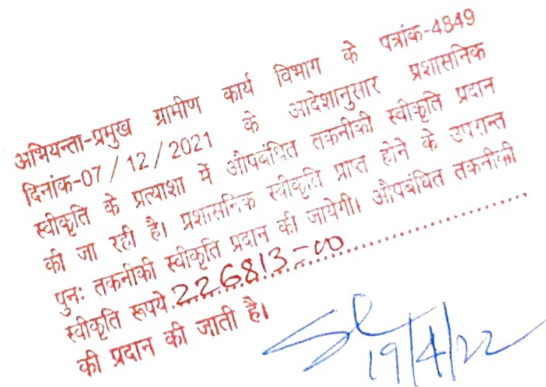 अभियन्ता-प्रमुख ग्रामीण कार्य विभाग के पत्रांक-4849
दिनांक-07/12/2021 के आदेशानुसार प्रशासनिक
स्वीकृति के प्रत्याशा में औपबंधित तकनीकी स्वीकृति प्रदान
की जा रही है। प्रशासनिक स्वीकृति प्राप्त होने के उपरान्त
पुनः तकनीकी स्वीकृति प्रदान की जायेगी। औपबंधित तकनीकी
स्वीकृति रूपये.226813-00
की प्रदान की जाती है।
19/4/22